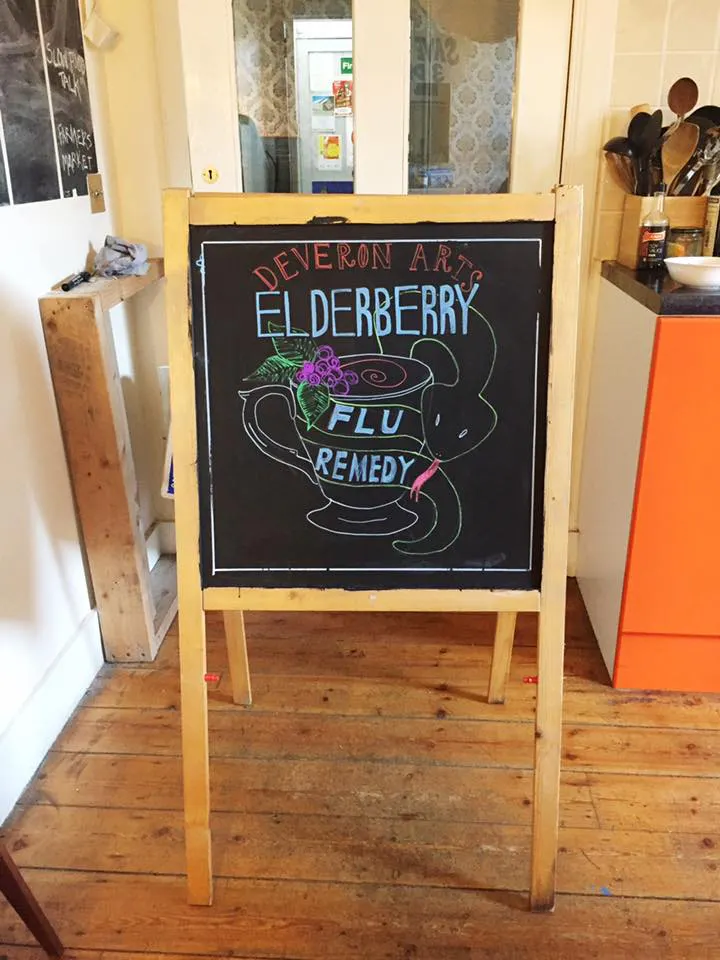 DEVERON ARTS
ELDERBERRY
FLU
REMEDY
TALK
FARMER'S
MARKET
SAVE